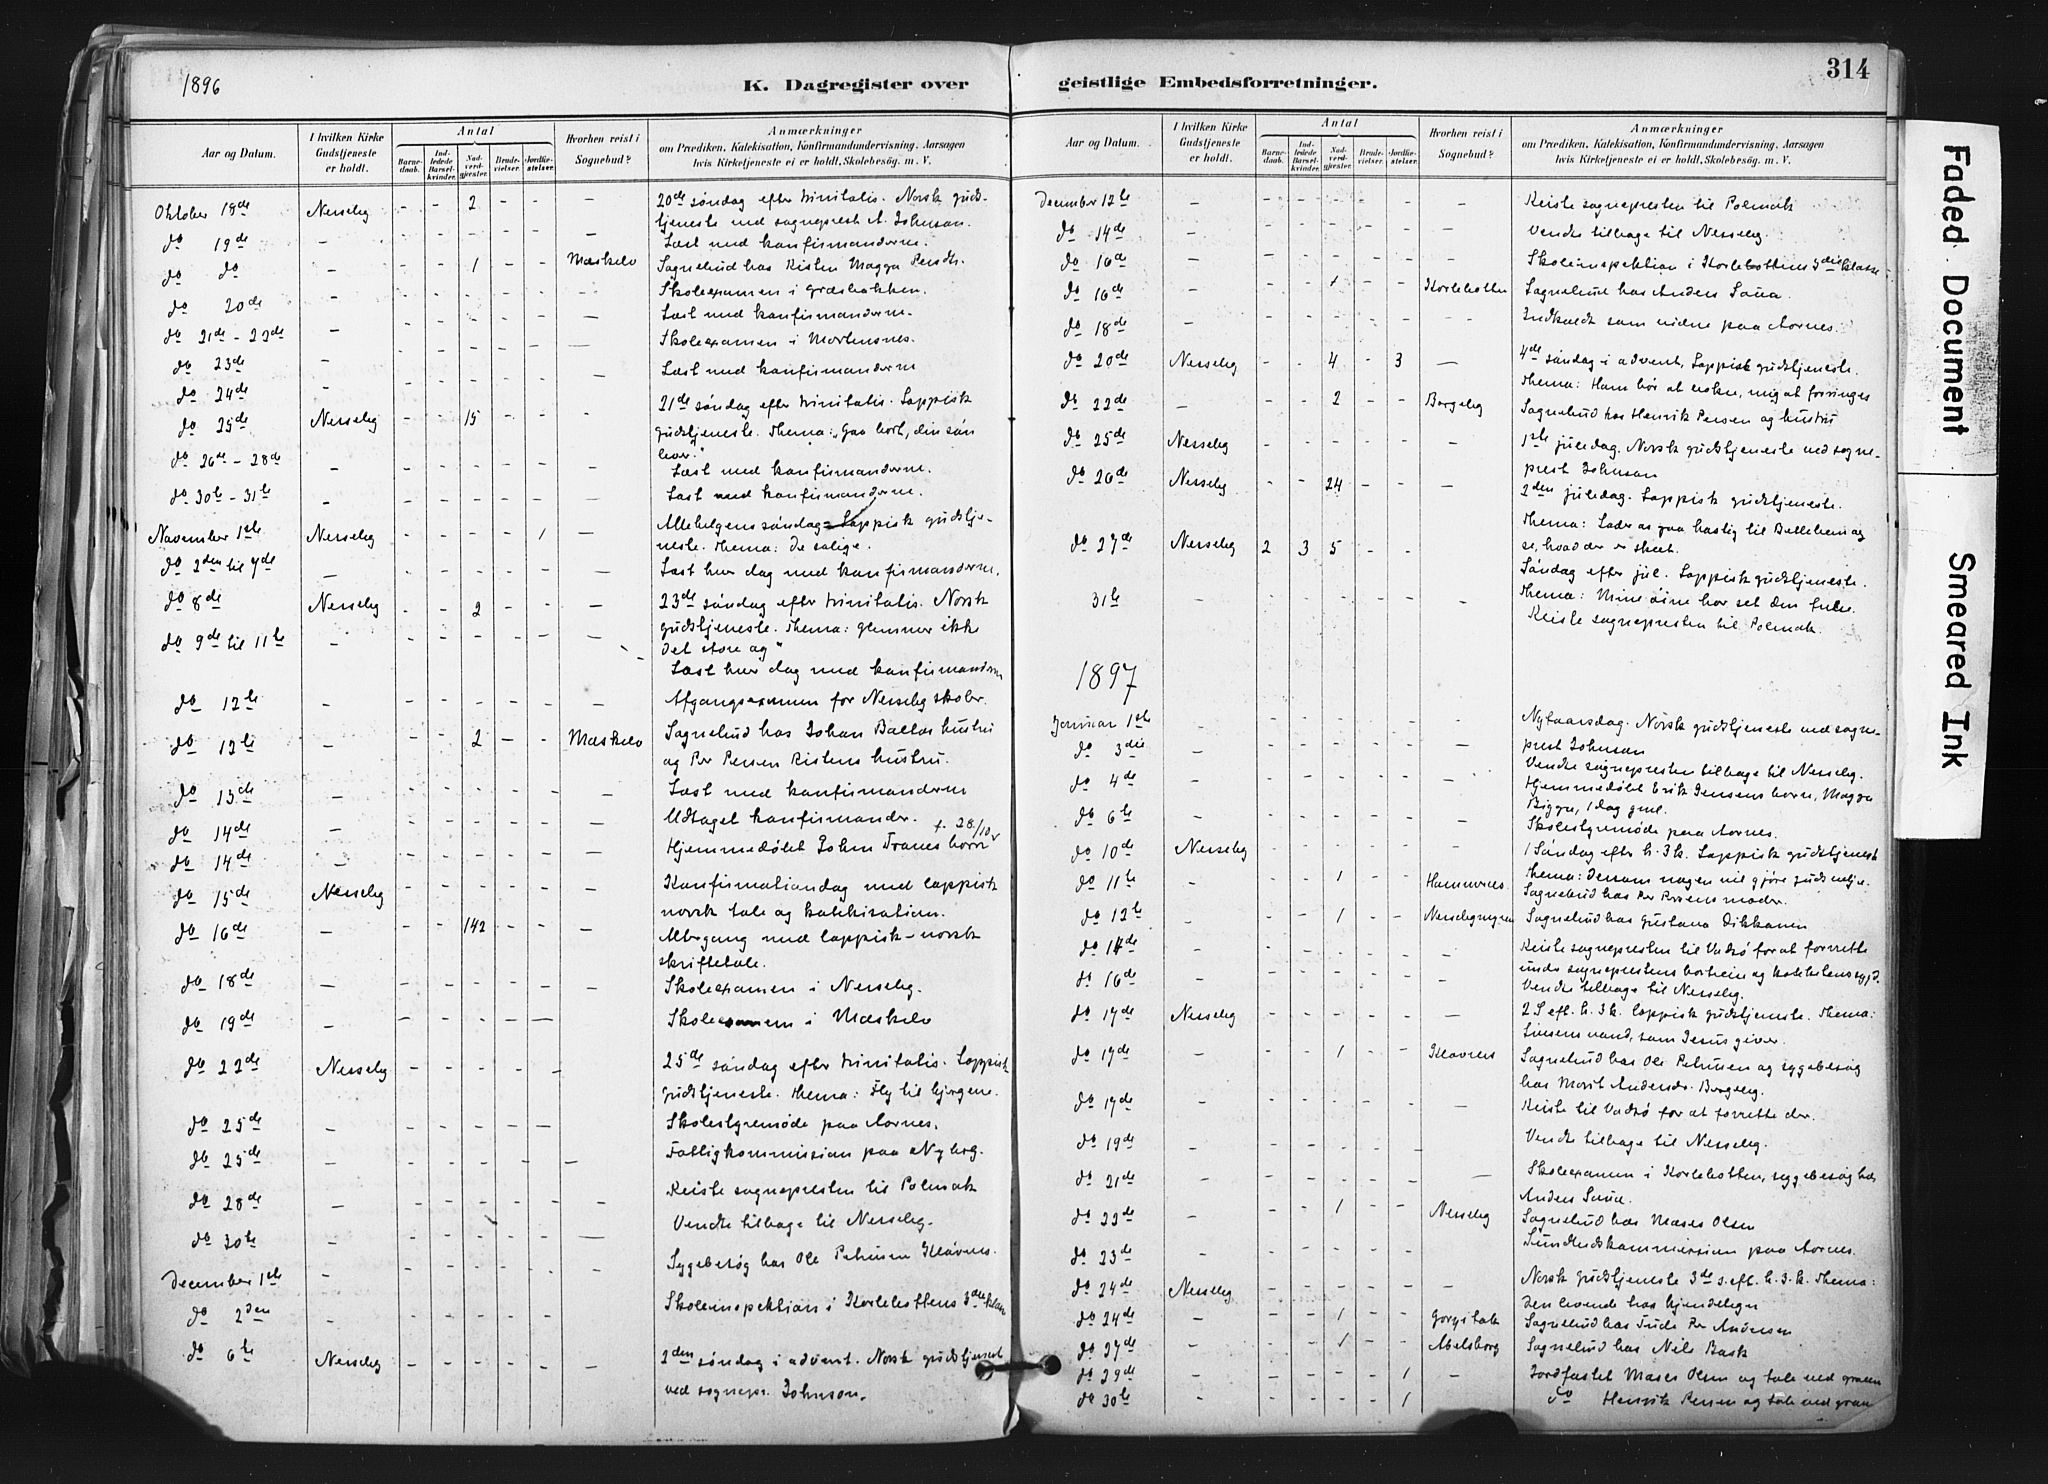 1896
K. Dagregister over
geistlige Embedsforretninger.
314
Aar og Datum.
I hvilken Kirke Gudstjeneste er holdt.
Antal
Barnedaab.
Indledede Barselkvinder.
Nadverdgjester.
Brudevielser.
Jordfæstelser.
Hvorhen reist i Sognebud?
Anmærkninger
om Prædiken, Katekisation, Konfirmandundervisning. Aarsagen
hvis Kirketjeneste ei er holdt, Skolebesög. m. V.
Oktober 18de Nesseby - - 2 - - - 20de søndag efter trinitatis. Norsk guds-
tjeneste ved sogneprest A. Johnson.
do 19de - Læst med konfirmanderne.
do do - 1 - - Mæskelv Sognebud hos Kisten Magga Persdtr.
do 20de - Skoleexamen i Græsbakken.
do 21de - 22de - Læst med konfirmanderne.
do 23de - Skoleexamen i Mortensnes.
do 24de - Læst med konfirmanderne
do 25de Nesseby - - 15 - - 21de søndag efter trinitatis. Lappisk
gudstjeneste. Thema: "Gaa bort, din søn
lever."
do 26de - 28de - Læst med konfirmanderne.
do 30te - 31te - Læst med konfirmanderne.
November 1ste Nesseby - - - - 1 Allehelgens søndag - Lappisk gudstje-
neste. Thema: De salige.
do 2den til 7de - Læst hver dag med konfirmanderne.
do 8de Nesseby - - 2 - - - 23de søndag efter trinitatis. Norsk
gudstjeneste. Thema: glemmer ikke
det store og"
do 9de til 11te - Læst hver dag med konfirmanderne
do 12te - Afgangsexamen for Nesseby skoler.
do 12te - 2 - - Mæskelv Sognebud hos Johan Ballos hustru
og Per Persen Ristens hustru.
do 13de - Læst med konfirmanderne
do 14de - Udtaget konfirmander. f. 28/10
do 14de - Hjemmedøbt John Tranes barn
do 15de Nesseby - - - - - - Konfirmationdag med lappisk
norsk tale og katekisation.
do 16de - - - 142 - - - Altergang med lappisk-norsk
skriftetale.
do 18de - Skoleexamen i Nesseby.
do 19de - Skoleexamen i Mæskelv
do 22de Nesseby - - - - - 25de søndag efter trinitatis. Lappisk
gudstjeneste. Thema: Fly til bjergene.
do 25de - Skolestyremøde paa Aornes.
do 25de - Fattigkommission paa Nyborg.
do 28de - Reiste sognepresten til Polmak
do 30te - Vendte tilbage til Nesseby.
December 1ste - Sygebesøg hos Ole Petersen Kløvnes.
do 2den - Skoleinspektion i Karlebottens 3die klasse
do 6te Nesseby - - - - - 2den søndag i advent. Norsk gudstjeneste
ved sognepr. Johnson.
Aar og Datum.
I hvilken Kirke Gudstjeneste er holdt.
Antal
Barnedaab.
Indledede Barselkvinder.
Nadverdgjester.
Brudevielser.
Jordfæstelser.
Hvorhen reist i Sognebud?
Anmærkninger
om Prædiken, Katekisation, Konfirmandundervisning. Aarsagen
hvis Kirketjeneste ei er holdt, Skolebesög. m. V.
December 12te - Reiste sognepresten til Polmak
do 14de - Vendte tilbage til Nesseby.
do 16de - Skoleinspektion i Karlebottens 3die klasse
do 16de - 1 - - Karlebotten Sognebud hos Anders Saua.
do 18de - Indkaldt som vidne paa Aornes.
do 20de Nesseby - - 4 - 3 - 4de søndag i advent. Lappisk gudstjeneste.
Thema: Ham bør at vokse, mig at forringes
do 22de - 2 - - Bergeby Sognebud hos Henrik Persen og hustru
do 25de Nesseby - 1ste juledag. Norsk gudstjeneste ved sogne-
prest Johnson
do 26de Nesseby - - 24 - - - 2den juledag. Lappisk gudstjeneste.
Thema: Lader os gaa hastig til Betlehem og
se, hvad der er skeet.
do 27de Nesseby 2 3 5 - - Søndag efter jul. Lappisk gudstjeneste.
Thema: Mine øine har set din frelse.
31te - Reiste sognepresten til Polmak.
1897
Januar 1ste - Nytaarsdag. Norsk gudstjeneste ved sogne-
prest Johnson
do 3die - Vendte sognepresten tilbage til Nesseby.
do 4de - Hjemmedøbt Erik Jensens barn, Magga
Bigga, 1 dag gml.
do 6te - Skolestyremøde paa Aornes.
do 10de Nesseby - 1 Søndag efter h. 3 k. Lappisk gudstjeneste
Thema: Dersom nogen vil gjøre guds vilje.
do 11te - 1 - - Hamnes. Sognebud hos Per Persens moder.
do 12te - 1 - - Nessebymyren Sognebud hos Gustava Dikkanen
do 14de - Reiste sognepresten til Vadsø for at forrette
under sogneprestens bortreise og kateketens sygd.
do 16de - Vendte tilbage til Nesseby.
do 17de Nesseby - 2 S eft. h. 3 k. lappisk gudstjeneste. Thema:
Livsens vand, som Jesus giver.
do 17de - 1 - - Kløvnes Sognebud hos Ole Petersen og sygebesøg
hos Marit Andersdr. Bergeby.
do 17de - Reiste til Vadsø for at forrette der.
do 19de - Vendte tilbage til Nesseby.
do 21de - Skoleexamen i Karlebotten, sygebesøg hos
Anders Saua.
do 22de - 1 - - Nesseby Sognebud hos Moses Olsen
do 23de - Sundhedskommission paa Aornes.
do 24de Nesseby - Norsk gudstjeneste 3de s. eft. h. 3. k. Thema:
do 24de - 1 - - Sognebud hos Per Andersen
do 27de - 1 - - Abelsborg Sognebud hos Nils Bask
do 29de - 1 - Jordfæstet Moses Olsen og tale ved graven
do 30te - 1 do Henrik Persen og tale ved grav
Faded Document
Smeared Ink